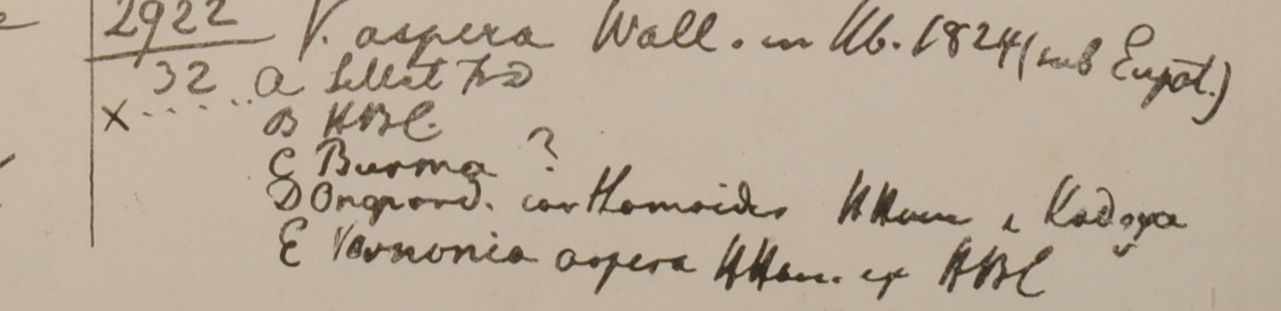 2922 V. aspera Wall. in Hb. 1824 (sub Eupat.)
32 a Sillet FD
X B HBC.
C Burma ?
D Ongpond. carthamoides HHam e Kadoya
E Vernonia aspera HHam. ex HBC